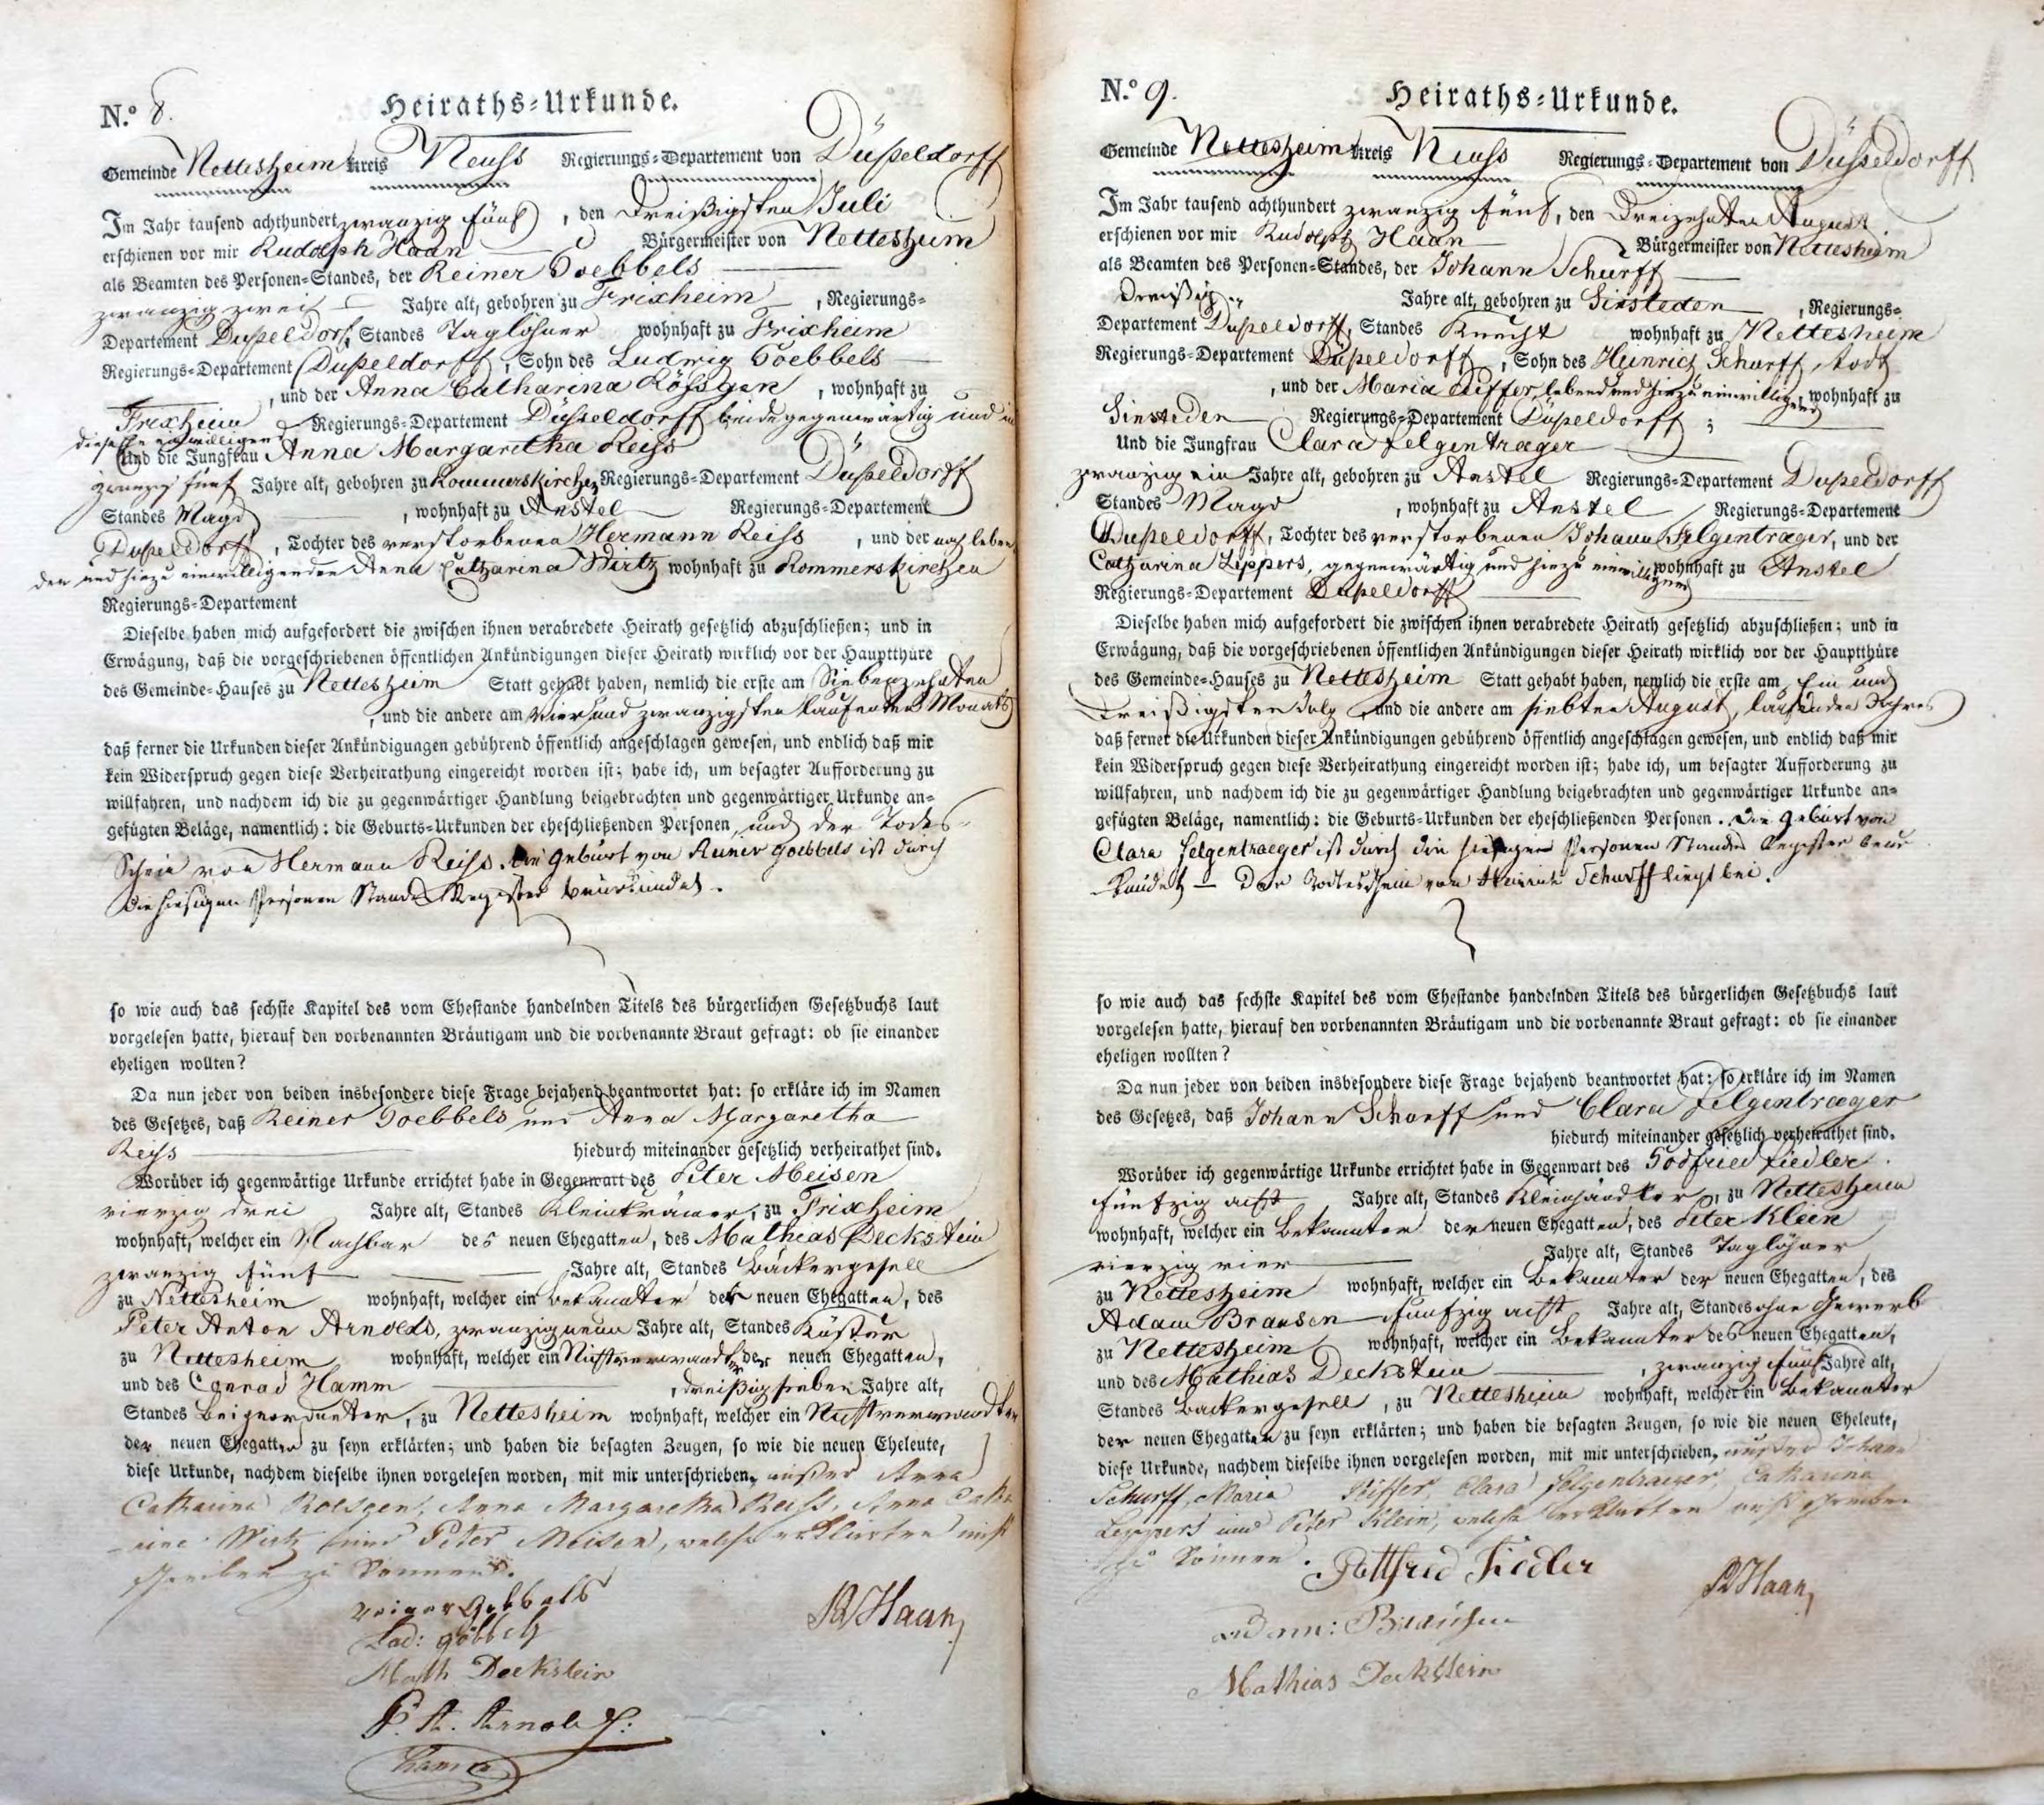 N.º 8.
Heiraths-Urkunde.
Gemeinde Nettesheim Kreis Neuss Regierungs-Departement von Düßeldorff
Im Jahr tausend achthundert zwanzig fünf, den dreißigsten Juli
erschienen vor mir Rudolph Haan Bürgermeister von Nettesheim
als Beamten des Personen-Standes, der Reiner Goebbels
zwanzig zwei Jahre alt, gebohren zu Frixheim, Regierungs-
Departement Dußeldorf, Standes Taglöhner wohnhaft zu Frixheim
Regierungs-Departement Dußeldorff, Sohn des Ludwig Goebbels
, und der Anna Catharina Rösgen, wohnhaft zu
Frixheim Regierungs-Departement Düßeldorff beide gegenwärtig und in
diese Ehe einwilligend
Und die Jungfrau Anna Margaretha Reiss
zwanzig fünf Jahre alt, gebohren zu Rommerskirchen Regierungs-Departement Düßeldorff
Standes Magd, wohnhaft zu Anstel Regierungs-Departement
Dußeldorff, Tochter des verstorbenen Hermann Reiss, und der noch leben
den und hiezu einwilligenden Anna Catharina Wirtz wohnhaft zu Rommerskirchen
Regierungs-Departement
Dieselbe haben mich aufgefordert die zwischen ihnen verabredete Heirath gesetzlich abzuschließen; und in
Erwägung, daß die vorgeschriebenen öffentlichen Ankündigungen dieser Heirath wirklich vor der Hauptthüre
des Gemeinde-Hauses zu Nettesheim Statt gehabt haben, nemlich die erste am Siebenzehnten
, und die andere am vier und zwanzigsten laufenden Monats
daß ferner die Urkunden dieser Ankündigungen gebührend öffentlich angeschlagen gewesen, und endlich daß mir
kein Widerspruch gegen diese Verheirathung eingereicht worden ist; habe ich, um besagter Aufforderung zu
willfahren, und nachdem ich die zu gegenwärtiger Handlung beigebrachten und gegenwärtiger Urkunde an-
gefügten Beläge, namentlich: die Geburts-Urkunden der eheschließenden Personen, und der Todes-
Schein von Hermann Reiss. Die Geburt von Reiner Goebbels ist durch
die hiesigen Personen Stands Register beurkundet.
so wie auch das sechste Kapitel des vom Ehestande handelnden Titels des bürgerlichen Gesetzbuchs laut
vorgelesen hatte, hierauf den vorbenannten Bräutigam und die vorbenannte Braut gefragt: ob sie einander
eheligen wollten?
Da nun jeder von beiden insbesondere diese Frage bejahend beantwortet hat: so erkläre ich im Namen
des Gesetzes, daß Reiner Goebbels und Anna Margaretha
Reiss hiedurch miteinander gesetzlich verheirathet sind.
Worüber ich gegenwärtige Urkunde errichtet habe in Gegenwart des Peter Meisen
vierzig drei Jahre alt, Standes Kleinkrämer, zu Frixheim
wohnhaft, welcher ein Nachbar des neuen Ehegatten, des Mathias Deckstein
zwanzig fünf Jahre alt, Standes Bäckergesell
zu Nettesheim wohnhaft, welcher ein Bekannter der neuen Ehegatten, des
Peter Anton Arnolds, zwanzig neun Jahre alt, Standes Küster
zu Nettesheim wohnhaft, welcher ein Nichtverwandter der neuen Ehegatten,
und des Conrad Hamm, dreißig sieben Jahre alt,
Standes Beigeordneter, zu Nettesheim wohnhaft, welcher ein Nichtverwandter
der neuen Ehegatten zu seyn erklärten; und haben die besagten Zeugen, so wie die neuen Eheleute,
diese Urkunde, nachdem dieselbe ihnen vorgelesen worden, mit mir unterschrieben, außer Anna
Catharina Roesgen, Anna Margaretha Reiss, Anna Catha
rine Wirtz und Peter Meisen, welche erklärten nicht
schreiben zu können.
Reiner Gebbels
Lud: Göbbels
RHaan
Math Deckstein
P. A. Arnolds
Hamm
N.º 9.
Heiraths-Urkunde.
Gemeinde Nettesheim Kreis Neuss Regierungs-Departement von Düsseldorff
Im Jahr tausend achthundert zwanzig fünf, den dreizehnten August
erschienen vor mir Rudolph Haan Bürgermeister von Nettesheim
als Beamten des Personen-Standes, der Johann Schurff
dreißig Jahre alt, gebohren zu Sinsteden, Regierungs-
Departement Dußeldorff, Standes Knecht wohnhaft zu Nettesheim
Regierungs-Departement Düßeldorff, Sohn des Heinrich Schurff, todt
, und der Maria Aiffer, lebend und hiezu einwilligend, wohnhaft zu
Sinsteden Regierungs-Departement Düßeldorff;
Und die Jungfrau Clara Felgentraeger
zwanzig ein Jahre alt, gebohren zu Anstel Regierungs-Departement Dußeldorff
Standes Magd, wohnhaft zu Anstel Regierungs-Departement
Dußeldorff, Tochter des verstorbenen Johann Felgentraeger, und der
Catharina Leppers, gegenwärtig und hiezu einwilligend wohnhaft zu Anstel
Regierungs-Departement Dußeldorff
Dieselbe haben mich aufgefordert die zwischen ihnen verabredete Heirath gesetzlich abzuschließen; und in
Erwägung, daß die vorgeschriebenen öffentlichen Ankündigungen dieser Heirath wirklich vor der Hauptthüre
des Gemeinde-Hauses zu Nettesheim Statt gehabt haben, nemlich die erste am Ein und
dreißigsten July, und die andere am siebten August, laufenden Jahres
daß ferner die Urkunden dieser Ankündigungen gebührend öffentlich angeschlagen gewesen, und endlich daß mir
kein Widerspruch gegen diese Verheirathung eingereicht worden ist; habe ich, um besagter Aufforderung zu
willfahren, und nachdem ich die zu gegenwärtiger Handlung beigebrachten und gegenwärtiger Urkunde an-
gefügten Beläge, namentlich: die Geburts-Urkunden der eheschließenden Personen. Die Geburt von
Clara Felgentraeger ist durch die hiesigen Personen Stands Register beur
kundet – Der Todtesschein von Heinrich Schurff liegt bei.
so wie auch das sechste Kapitel des vom Ehestande handelnden Titels des bürgerlichen Gesetzbuchs laut
vorgelesen hatte, hierauf den vorbenannten Bräutigam und die vorbenannte Braut gefragt: ob sie einander
eheligen wollten?
Da nun jeder von beiden insbesondere diese Frage bejahend beantwortet hat: so erkläre ich im Namen
des Gesetzes, daß Johann Schurff und Clara Felgentraeger
hiedurch miteinander gesetzlich verheirathet sind.
Worüber ich gegenwärtige Urkunde errichtet habe in Gegenwart des Godfried Fiedler
fünfzig acht Jahre alt, Standes Kleinhändler, zu Nettesheim
wohnhaft, welcher ein Bekannter der neuen Ehegatten, des Peter Klein
vierzig vier Jahre alt, Standes Taglöhner
zu Nettesheim wohnhaft, welcher ein Bekannter der neuen Ehegatten, des
Adam Brausen fünfzig acht Jahre alt, Standes ohne Gewerb
zu Nettesheim wohnhaft, welcher ein Bekannter des neuen Ehegatten,
und des Mathias Deckstein, zwanzig fünf Jahre alt,
Standes Backergesell, zu Nettesheim wohnhaft, welcher ein Bekannter
der neuen Ehegatten zu seyn erklärten; und haben die besagten Zeugen, so wie die neuen Eheleute,
diese Urkunde, nachdem dieselbe ihnen vorgelesen worden, mit mir unterschrieben, außer Johann
Schurff, Maria Clara Felgentraeger, Catharina
Leppers und Peter Klein, welche erklärten nicht schreiben
zu können.
Gottfried Fiedler
RHaan
Adam: Brausen
Mathias Deckstein